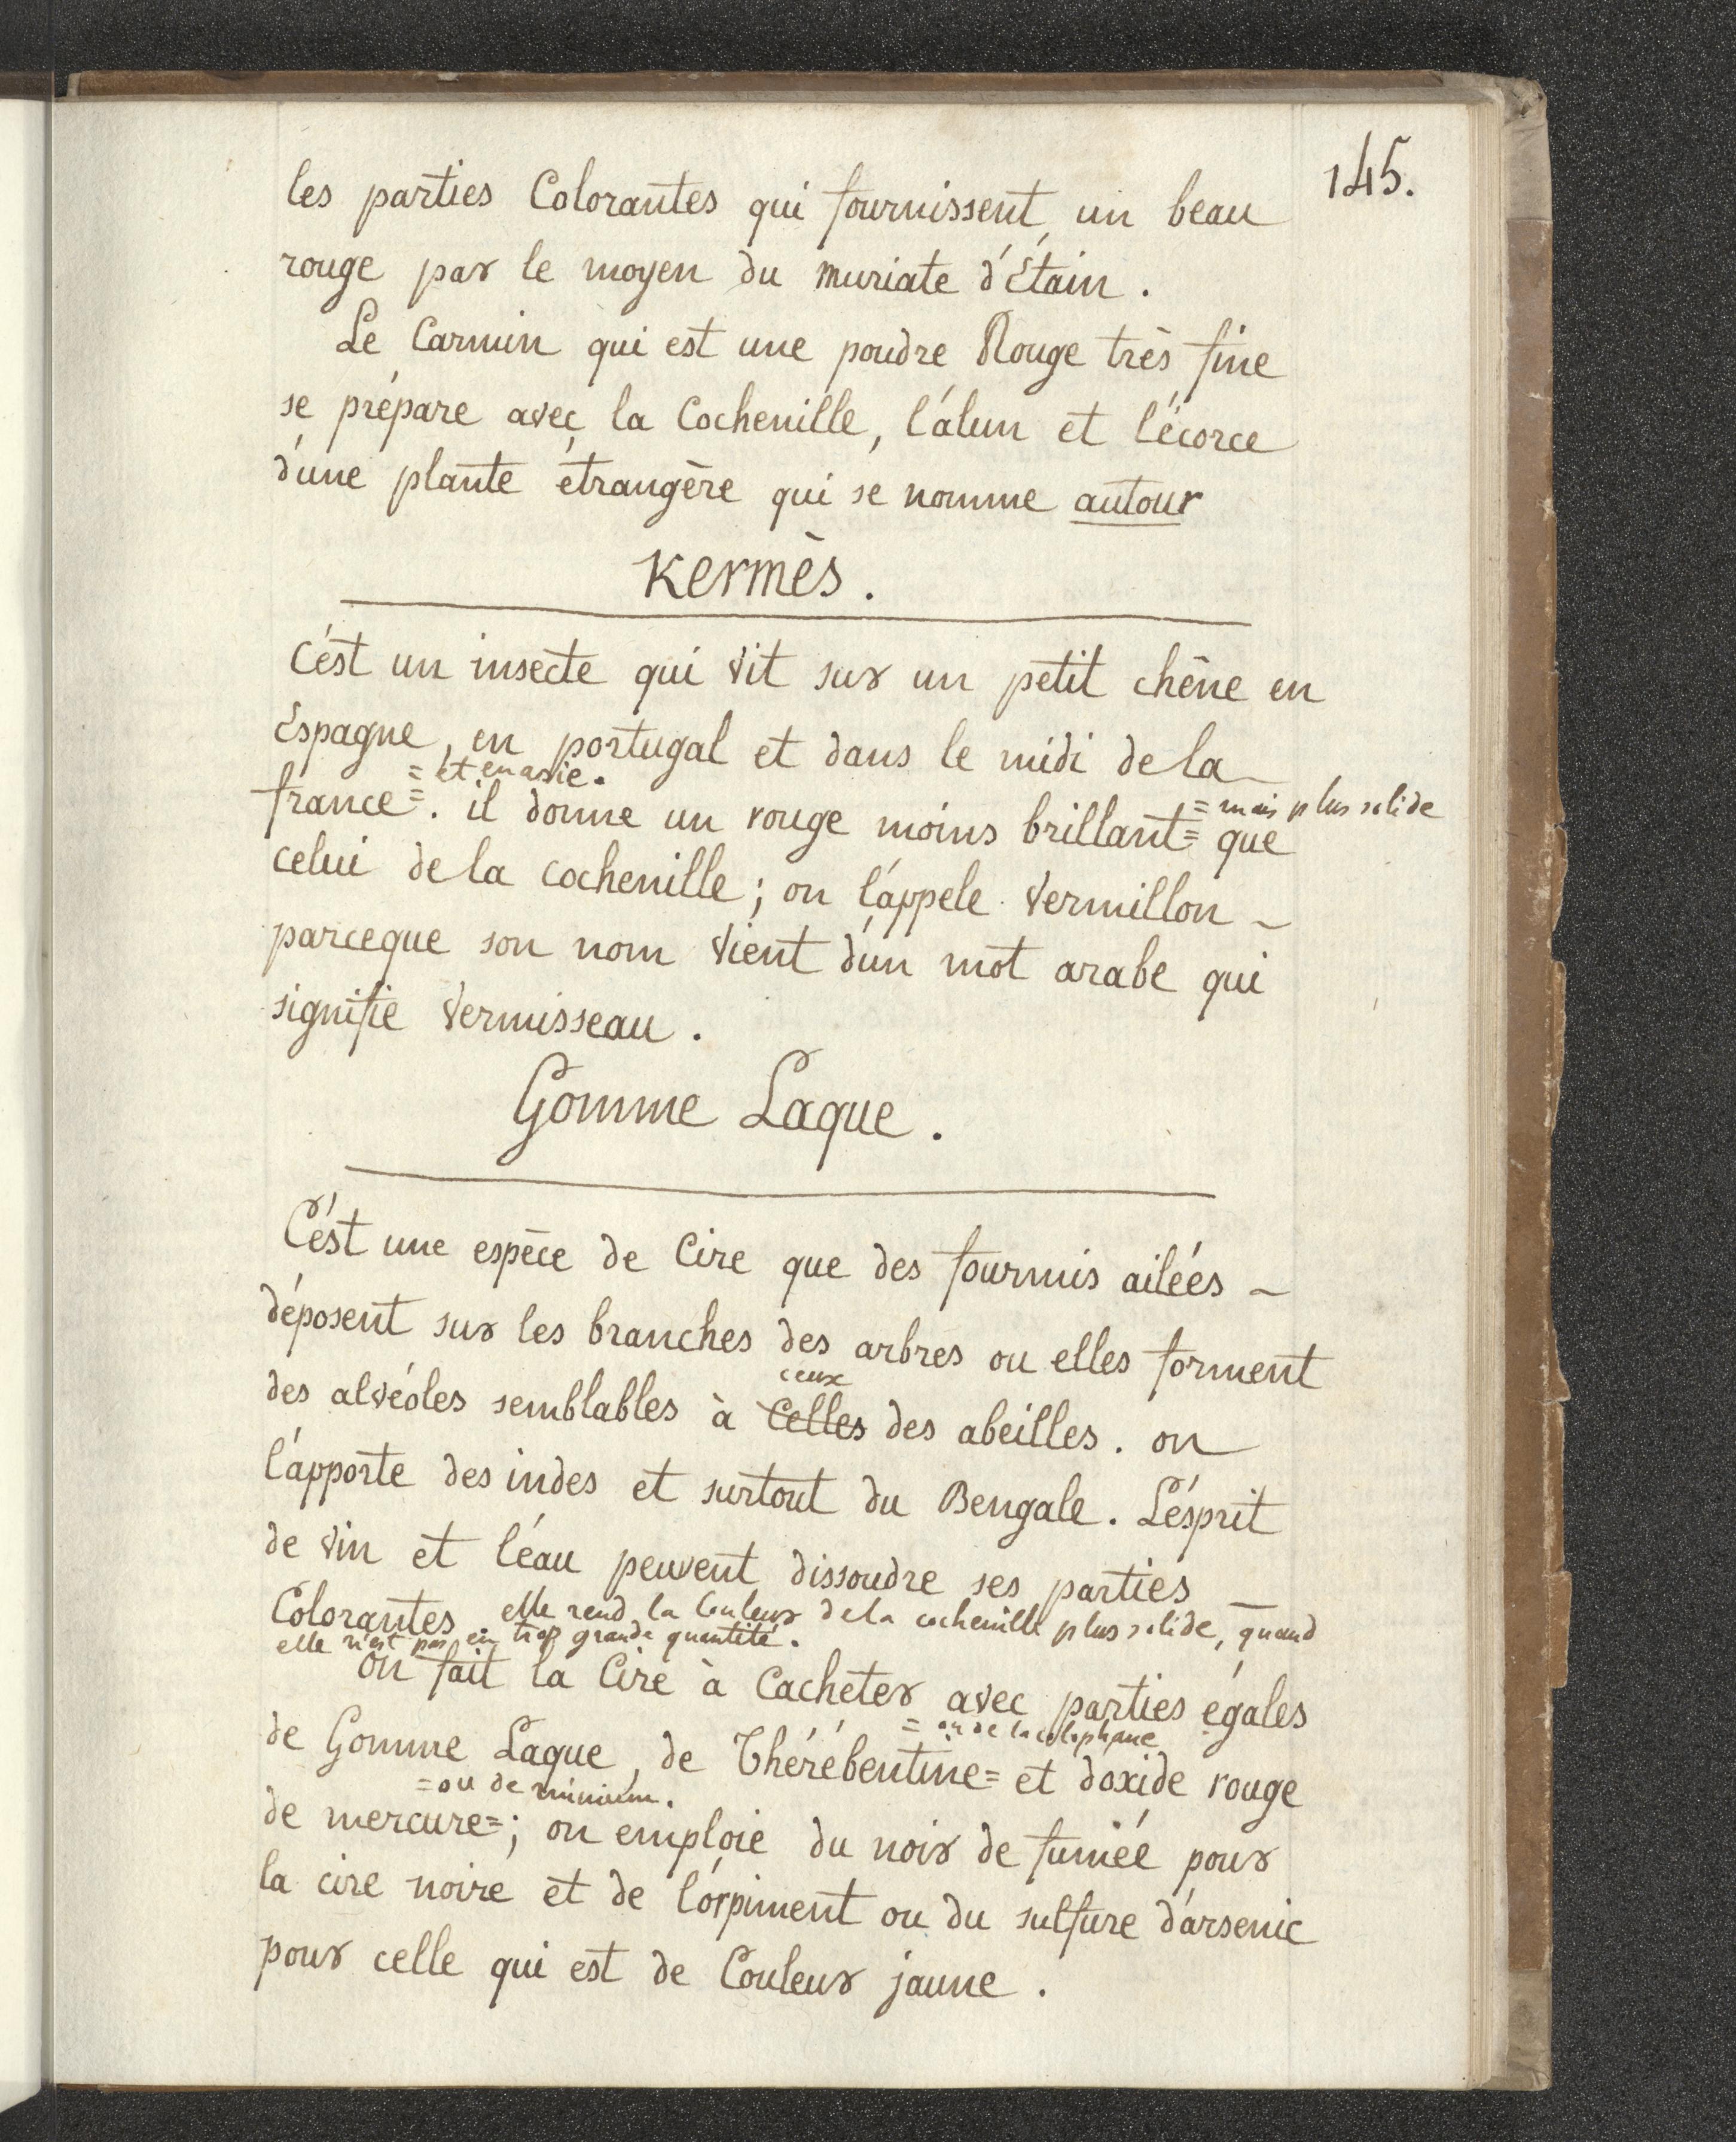 145.
les parties Colorantes qui fournissent un beau
rouge par le moyen du muriate d'Étain.
Le Carmin qui est une poudre Rouge très fine
se prépare avec la Cochenille, l'alun et l'écorce
d'une plante étrangère qui se nomme autour
Kermès.
C'est un insecte qui vit sur un petit chêne en
Espagne, en portugal et dans le midi de la
= et en asie.
france =. il donne un rouge moins brillant = que
= mais plus solide
celui de la cochenille; on l'appele vermillon
parceque son nom vient d'un mot arabe qui
signifie vermisseau.
Gomme Laque.
C'est une espèce de Cire que des fourmis ailées
déposent sur les branches des arbres ou elles forment
ceux
des alvéoles semblables à Celles des abeilles. on
l'apporte des indes et surtout du Bengale. L'esprit
de vin et l'eau peuvent dissoudre ses parties
Colorantes. elle rend la Couleur de la cochenille plus solide, quand
elle n'est pas en trop grande quantité.
on fait la Cire à Cacheter avec parties égales
= ou de la colophane
de Gomme Laque, de Thérébentine = et d'oxide rouge
= ou de minium.
de mercure =; on emploie du noir de fumée pour
la cire noire et de l'orpiment ou du sulfure d'arsenic
pour celle qui est de Couleur jaune.